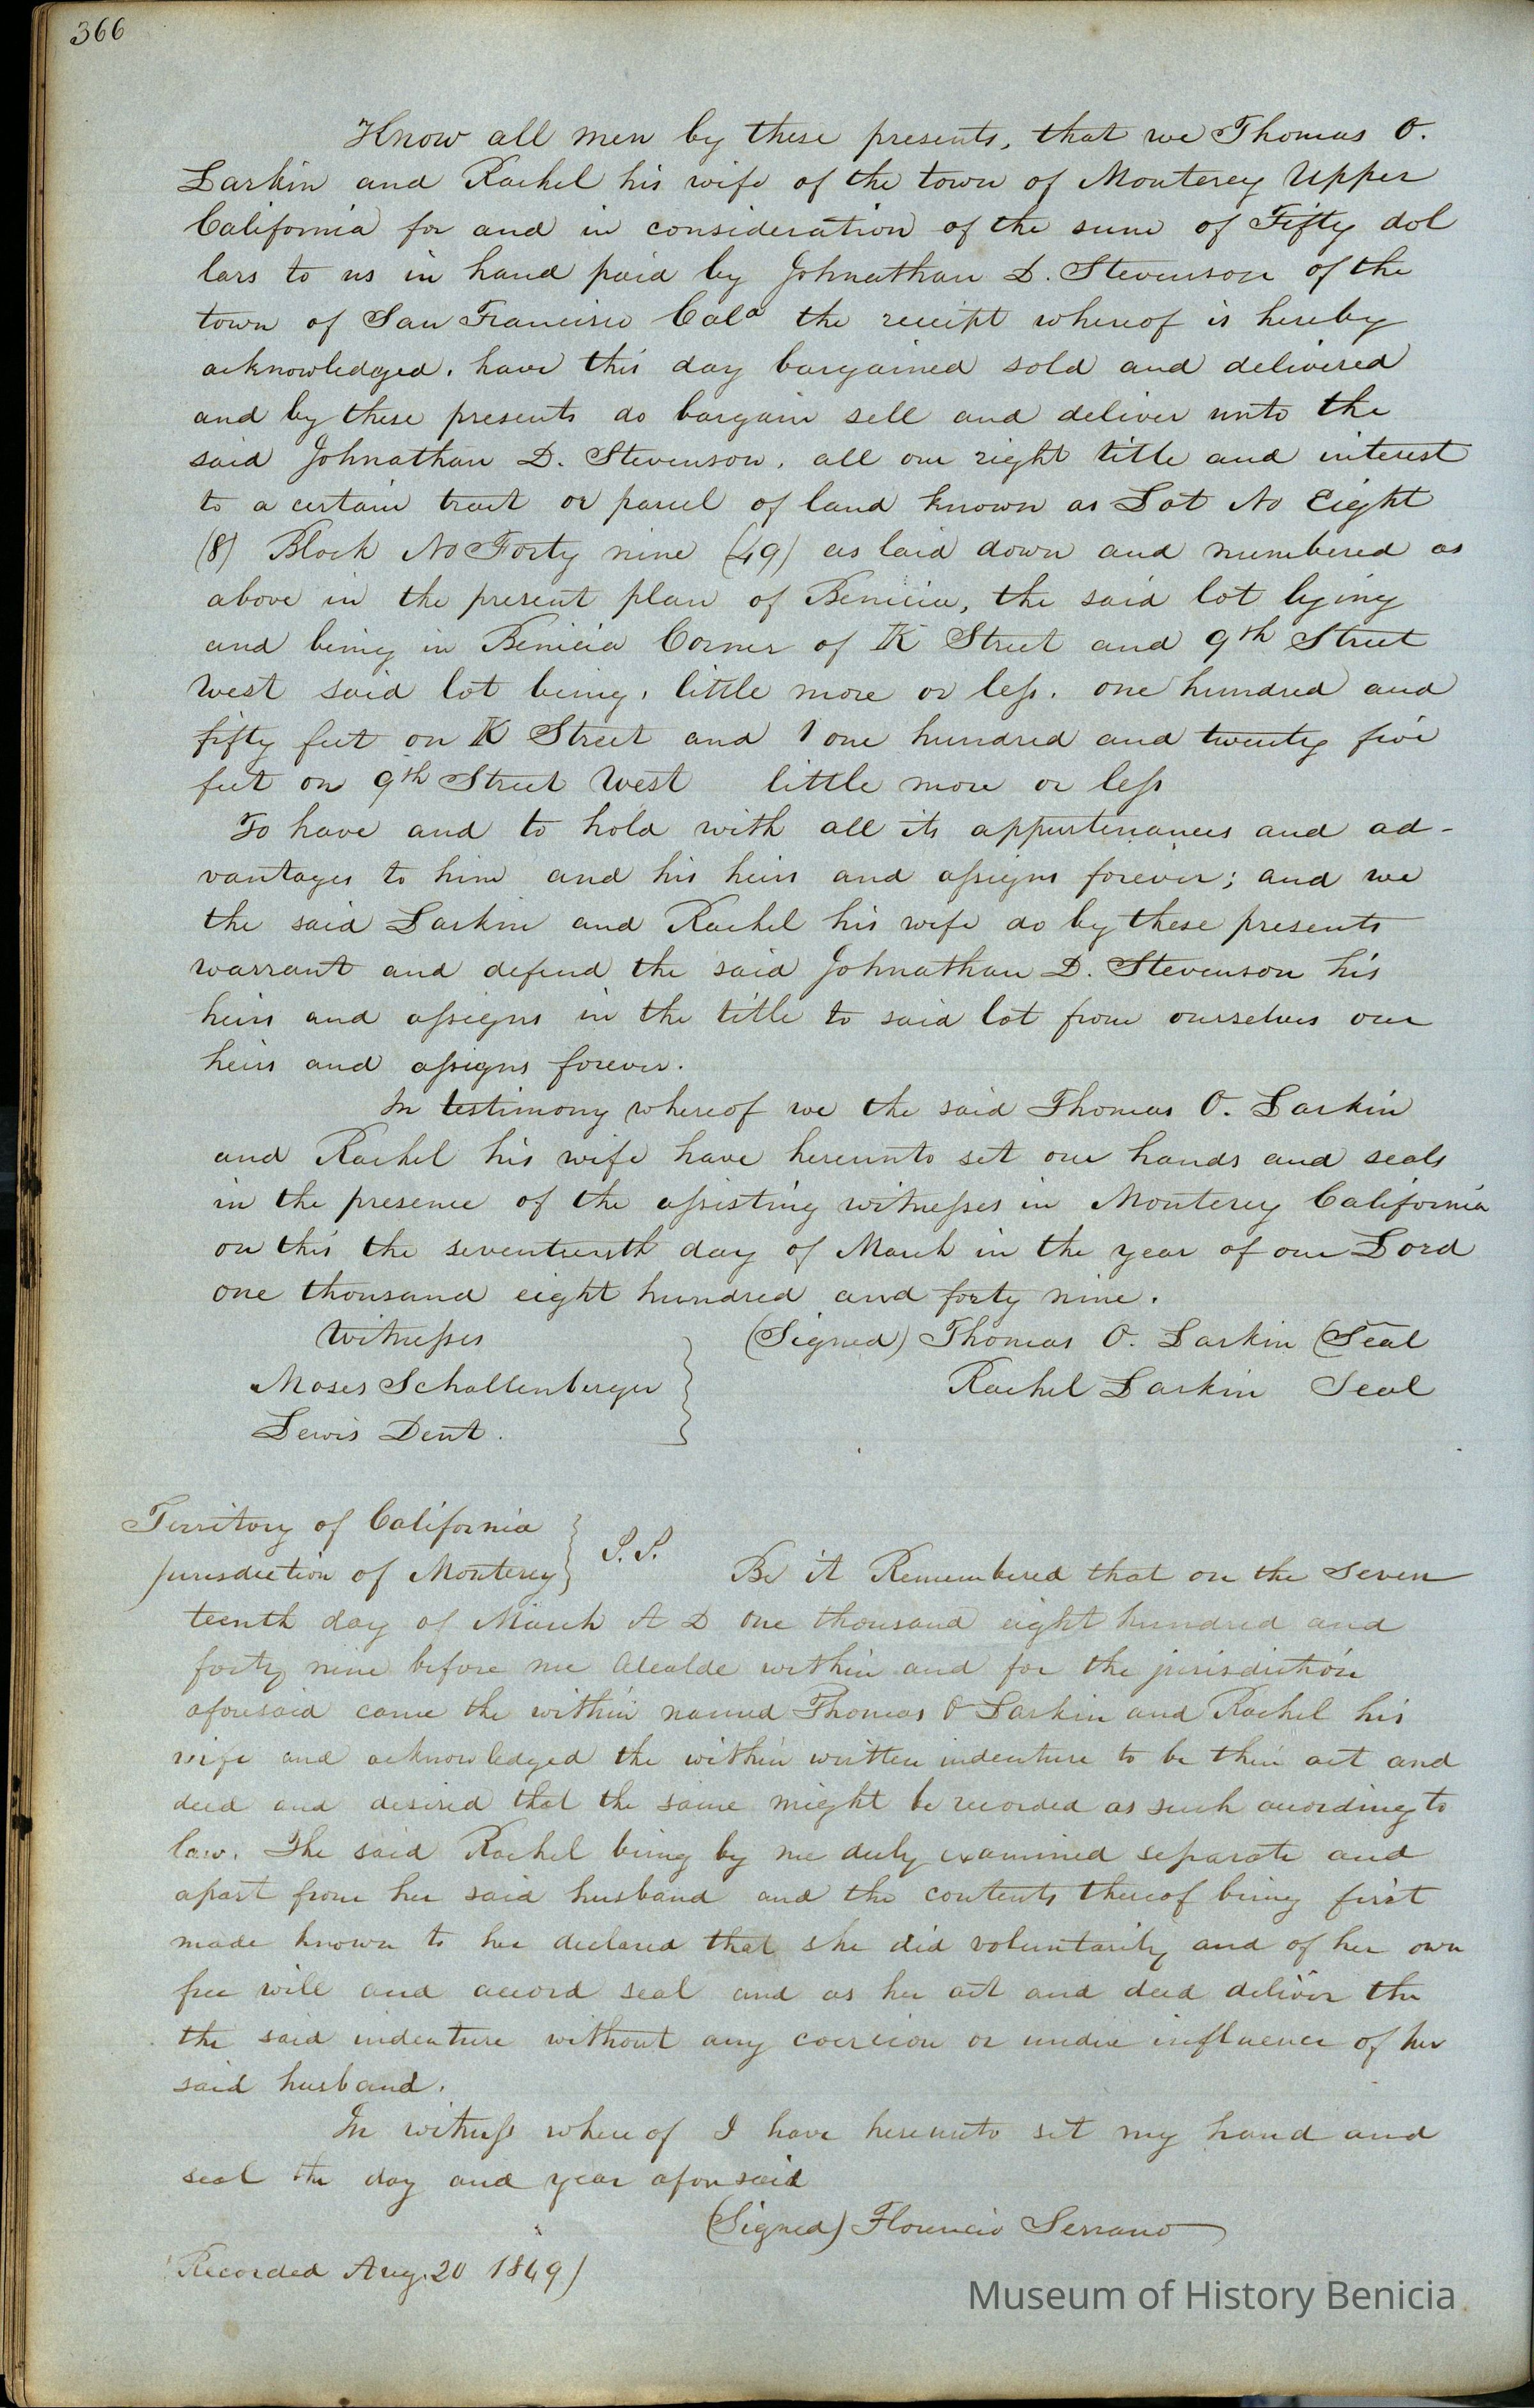 366
Know all men by these presents, that we Thomas O.
Larkin and Rachel his wife of the town of Monterey Upper
California for and in consideration of the sum of Fifty dol
lars to us in hand paid by Johnathan D. Stevenson of the
town of San Francisco Cala the receipt whereof is hereby
acknowledged, have this day bargained sold and delivered
and by these presents do bargain sell and deliver unto the
said Johnathan D. Stevenson, all our right title and interest
to a certain tract or parcel of land known as Lot No Eight
(8) Block No Forty nine (49) as laid down and numbered as
above in the present plan of Benicia, the said lot lying
and being in Benicia Corner of K Street and 9th Street
West said lot being, little more or less, one hundred and
fifty feet on K Street and 1 one hundred and twenty five
feet on 9th Street West little more or less
To have and to hold with all its appurtenances and ad-
vantages to him and his heirs and assigns forever; and we
the said Larkin and Rachel his wife do by these presents
warrant and defend the said Johnathan D. Stevenson his
heirs and assigns in the title to said lot from ourselves our
heirs and assigns forever.
In testimony whereof we the said Thomas O. Larkin
and Rachel his wife have hereunto set our hands and seals
in the presence of the assisting witnesses in Monterey California
on this the seventeenth day of March in the year of our Lord
one thousand eight hundred and forty nine.
Witnesses (Signed) Thomas O. Larkin (Seal
Moses Schallenberger Rachel Larkin Seal
Lewis Dent.
Territory of California
jurisdiction of Monterey } S.S. Be it Remembered that on the Seven
teenth day of March A D one thousand eight hundred and
forty nine before me Alcalde within and for the jurisdiction
aforesaid came the within named Thomas O Larkin and Rachel his
wife and acknowledged the within written indenture to be their act and
deed and desired that the same might be recorded as such acording to
law. The said Rachel being by me duly examined separate and
apart from her said husband and the contents thereof being first
made known to her declared that she did voluntarily and of her own
free will and accord seal and as her act and deed deliver the
the said indenture without any coercion or undue influence of her
said husband.
In witness whereof I have hereunto set my hand and
seal the day and year aforesaid
(Signed) Florencio Serrano
Recorded Aug. 20 1849)
Museum of History Benicia